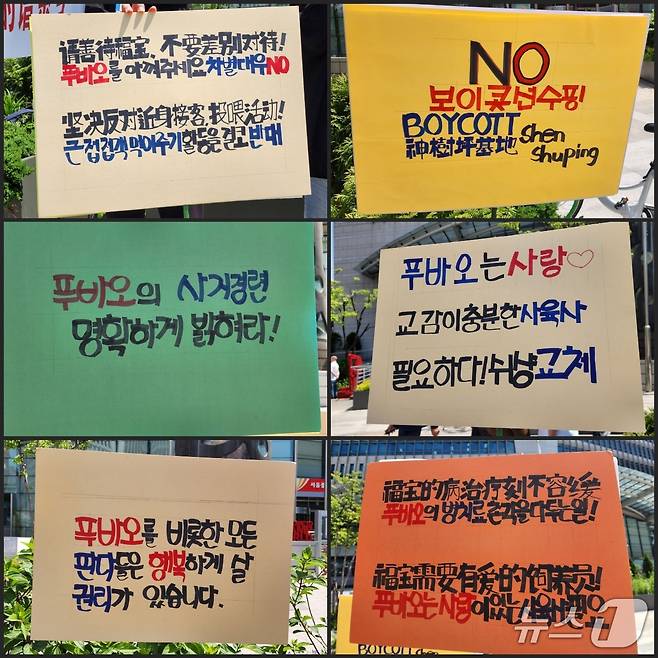 请善待福宝, 不要差别对待!
푸바오를 아껴주세요 차별대우NO
坚决反对近身接客, 投喂活动!
근접접객 먹이주기 활동은 결코 반대
NO
보이콧선수핑
BOYCOTT shen
神樹坪基地 shuping
푸바오의 사지경련
명확하게 밝혀라!
푸바오는 사랑♡
교감이충분한사육사
필요하다! 쉬냥교체
푸바오를 비롯한 모든
판다들은 행복하게 살
권리가 있습니다.
福宝的病治疗刻不容缓
푸바오의 병치료 촌각을 다투는일!
福宝需要有爱的饲养员!
푸바오는 사랑이있는
BOYCOTT shen
뉴스1